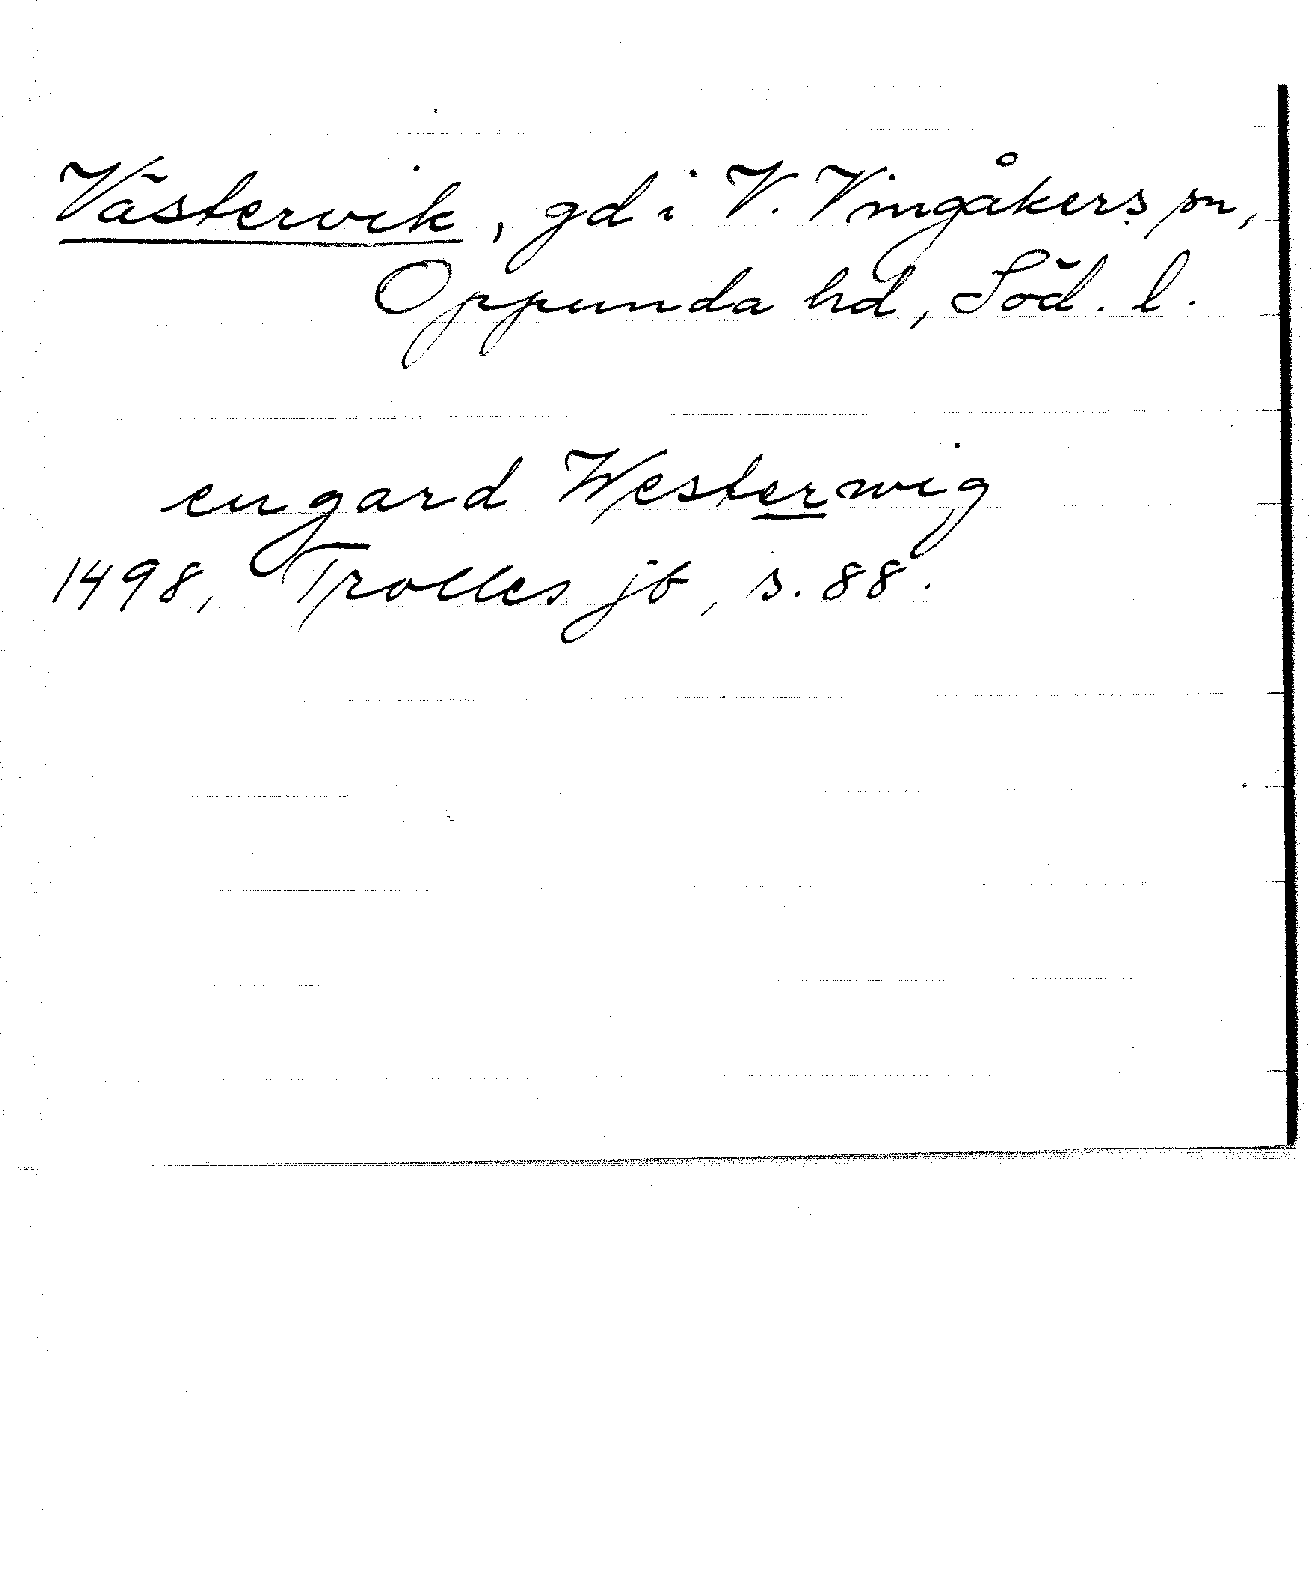 Västervik, gd i V. Vingåkers sn,
Oppunda hd, Söd. l.
en gard Westerwig
1498, Trolles jb, s. 88.